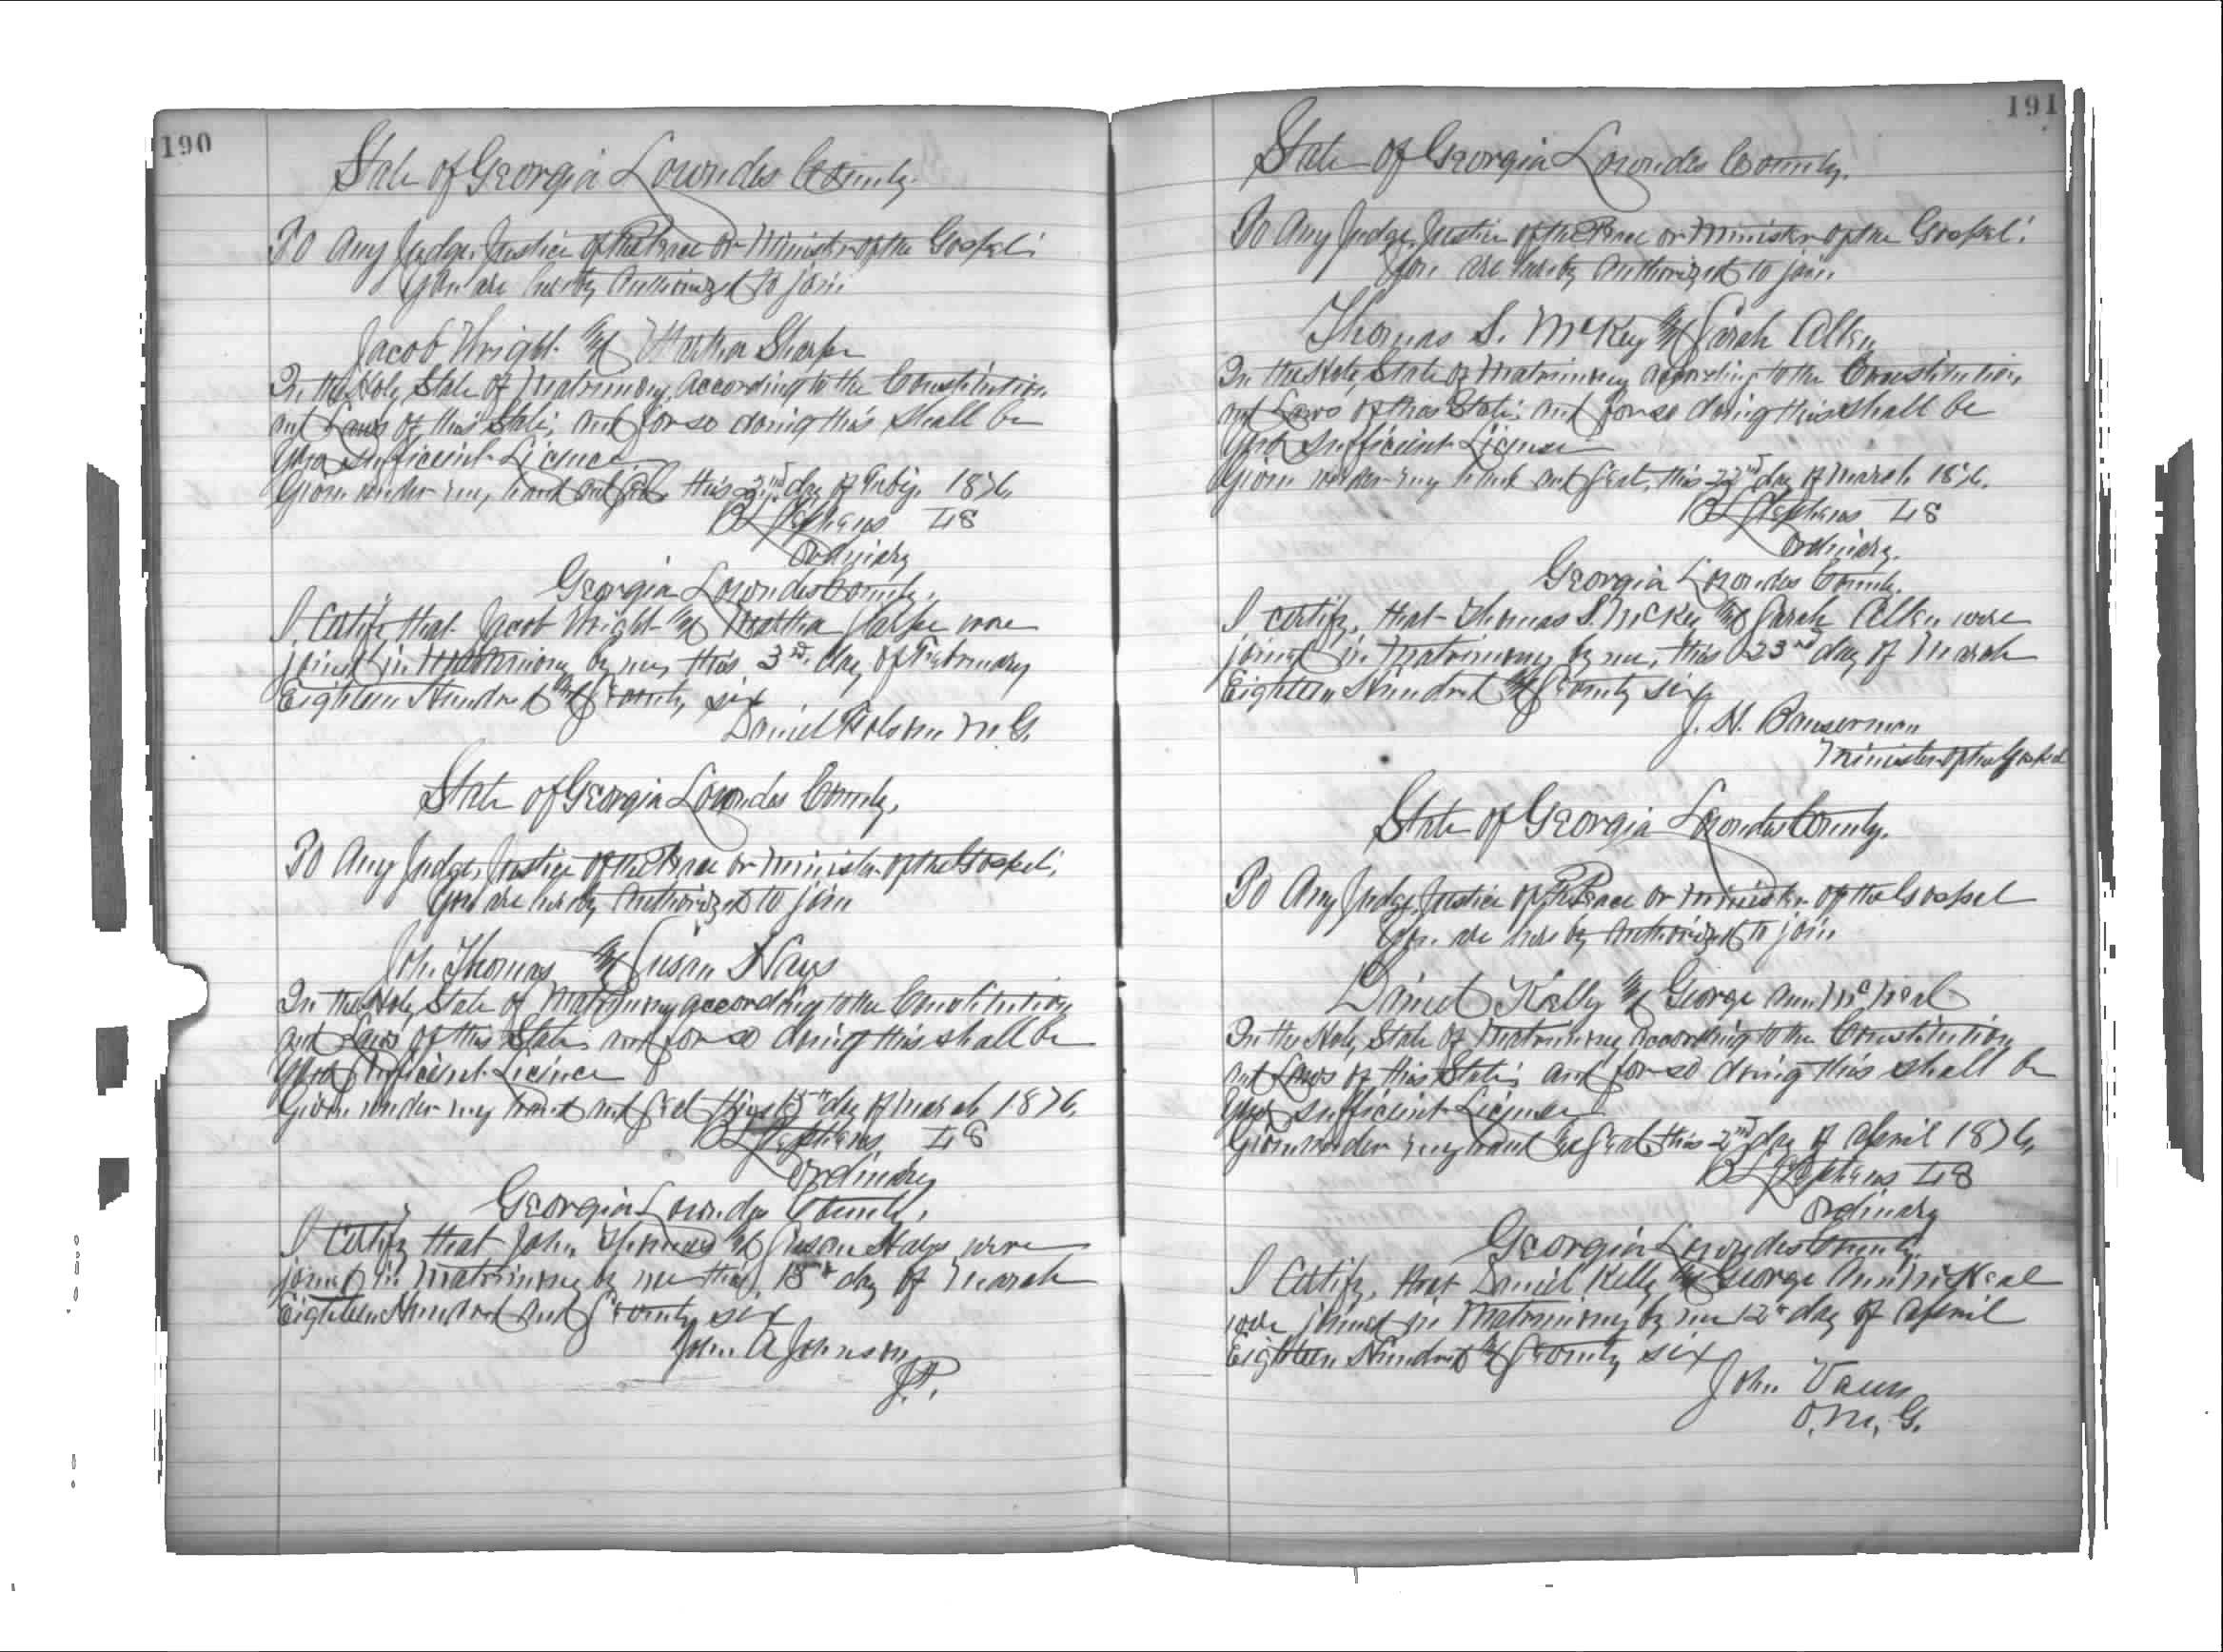 190
State of Georgia Lowndes County.
To Any Judge, Justice of the Peace or Minister of the Gospel;
You are hereby Authorized to join
Jacob Wright and Martha Sharpe
In the Holy State of Matrimony, according to the Constitution
and Laws of this State; and for so doing this shall be
your sufficient Licence
Given under my hand and seal this 2nd day of 1876.
B L Stephens L S
Ordinary
Georgia Lowndes County.
I, Certify that Jacob Wright and Martha Sharpe were
joined in Matrimony by me, this 3rd day of February
Eighteen Hundred and Seventy six
Daniel M. G.
State of Georgia Lowndes County.
To Any Judge, Justice of the Peace or Minister of the Gospel;
You are hereby Authorized to join
John Thomas and Susan Hays
In the Holy State of Matrimony according to the Constitution
and Laws of this State, and for so doing this shall be
your sufficient Licence
Given under my hand and seal this 15th day of March 1876.
B L Stephens L S
Ordinary
Georgia Lowndes County.
I Certify that John Thomas and Susan Hays were
joined in Matrimony by me this 15th day of March
Eighteen Hundred and Seventy six
John A Johnson
J.P.
191
State of Georgia Lowndes County.
To Any Judge, Justice of the Peace or Minister of the Gospel;
You are hereby Authorized to join
Thomas S. McKey and Sarah Allen
In the Holy State of Matrimony according to the Constitution,
and Laws of this State; and for so doing this shall be
your sufficient License
Given under my hand and seal, this 22nd day of March 1876.
B L Stephens L S
Ordinary.
Georgia Lowndes County.
I certify, that Thomas S. McKey and Sarah Allen were
joined in Matrimony by me, this 23rd day of March
Eighteen Hundred and Seventy six
J. H. Bowserman
Minister of the Gospel
State of Georgia Lowndes County.
To Any Judge, Justice of the Peace or Minister of the Gospel
You are hereby Authorized to join
Daniel Kelly and George Ann McNeal
In the Holy State of Matrimony according to the Constitution
and Laws of this State; and for so doing this shall be
your sufficient License
Given under my hand and seal this 2nd day of April 1876.
B L Stephens L S
Ordinary
Georgia Lowndes County.
I Certify, that Daniel Kelly and George Ann McNeal
were joined in Matrimony by me 12th day of April
Eighteen Hundred and Seventy six
John
O. M. G.